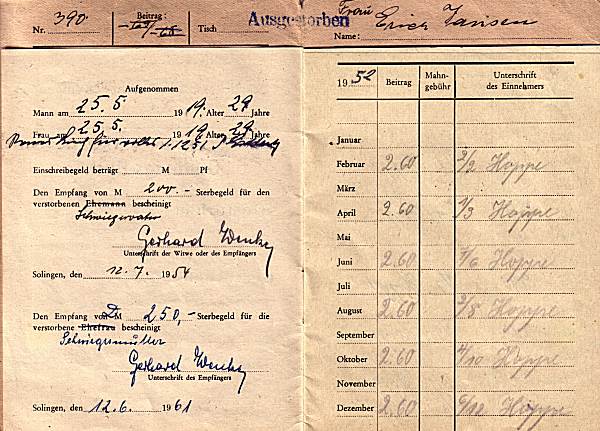 Nr. 390 Beitrag: Tisch Ausgestorben
Frau
Name: Erich Jansen
Aufgenommen
Mann am 25. 5. 1919. Alter 29 Jahre
Frau am 25.5. 1919 Alter 29 Jahre
Einschreibegeld beträgt M Pf
Den Empfang von M 200.- Sterbegeld für den
verstorbenen Ehemann bescheinigt
Schwiegervater
Gerhard
Unterschrift der Witwe oder des Empfängers
Solingen, den 12. 7. 1954
Den Empfang von DM 250,- Sterbegeld für die
verstorbene Ehefrau bescheinigt
Schwiegermutter
Gerhard
Unterschrift des Empfängers
Solingen, den 12.6. 1961
1952 Beitrag Mahn-gebühr Unterschrift des Einnehmers
Januar
Februar 2.60 3/2 Hoppe
März
April 2.60 Hoppe
Mai
Juni 2.60 Hoppe
Juli
August 2.60 3/8 Hoppe
September
Oktober 2.60 4/10 Hoppe
November
Dezember 2.60 6/12 Hoppe